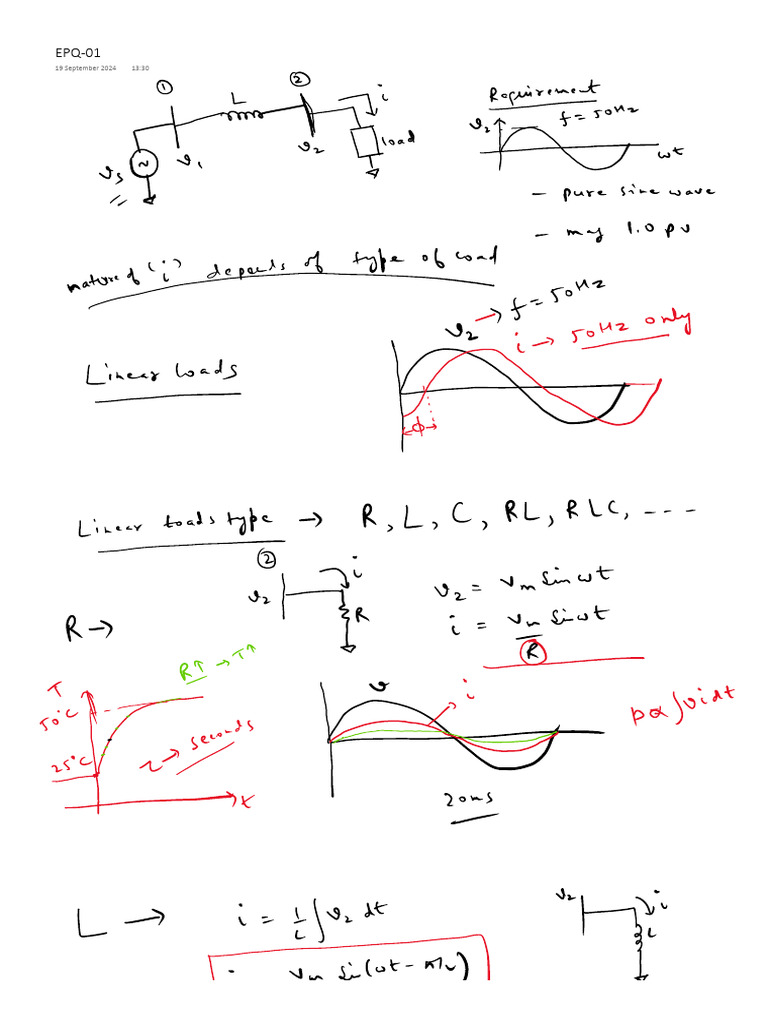 EPQ-01
19 September 2024 13:30
① L ② i
Requirement
v₂ f = 50Hz
vₛ ~ v₁ v₂ load
ωt
- pure sine wave
- mag 1.0 pu
nature of 'i' depends of type of load
v₂ → f = 50Hz
i → 50Hz only
Linear loads
ϕ
Linear loads type → R, L, C, RL, RLC, ---
② i
v₂ R
v₂ = vₘ sin ωt
R →
i = vₘ/R sin ωt
R↑ → T↑
T
50°C
25°C
τ → seconds
t
v i
p α ∫vi dt
20ms
L → i = 1/L ∫ v₂ dt
v₂ i
L
vₘ sin(ωt - π/2)